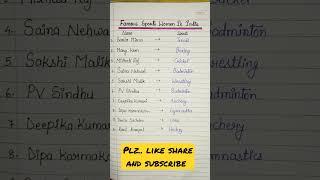 Famous Sports Women In India
Name Sports
1. Sania Mirza → Tennis
2. Mary Kom → Boxing
3. Mithali Raj → Cricket
4. Saina Nehwal → Badminton
5. Sakshi Malik → Wrestling
6. PV Sindhu → Badminton
7. Deepika Kumari → Archery
8. Dipa Karmakar → Gymnastics
→
Rani Rampal → Hockey
PLZ. LIKE SHARE
AND SUBSCRIBE
4. Saina Nehwal
5. Sakshi Malik
6. PV Sindhu
7. Deepika Kumar
8. Dipa Karmaka
Badminton
Wrestling
Badminton
Archery
Gymnastics